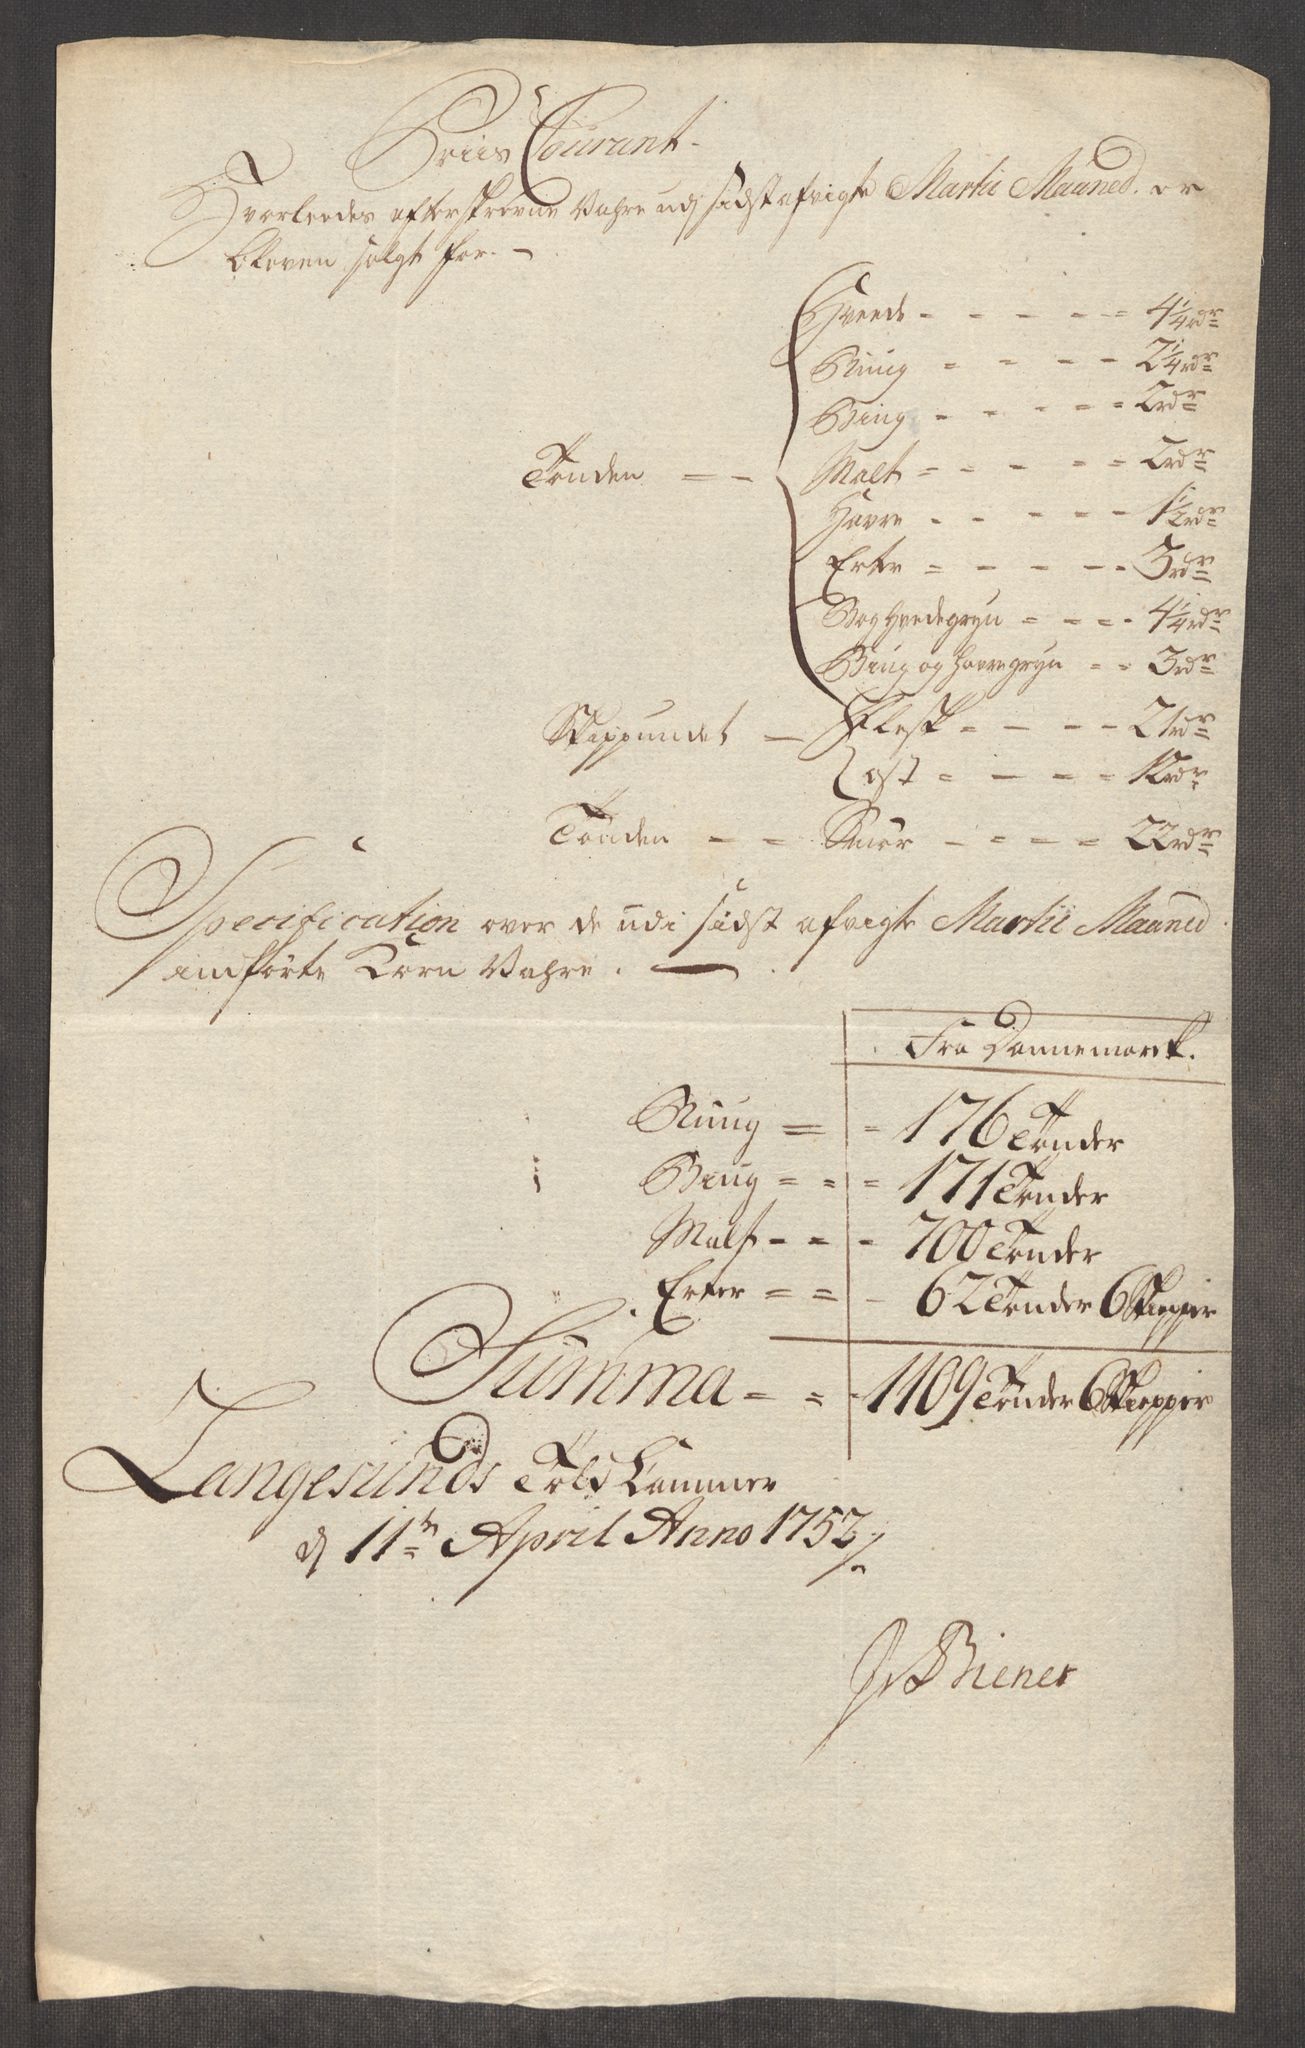 Priis Courant.
Hvorleedes efterskrevne Vahre udj sidst afvigte Martii Maaned. er
bleven solgt for. –
Tønden = - Hveede - - - - = 4 1/4 rdr
Ruug = - - - 2 1/4 rdr
Biug - - - = = 2 rdr
Malt = - - = = 2 rdr
Havre - - - - - 1 1/2 rdr
Erter = - - - - 3 rdr
Boghvedegryn = - = - 4 1/4 rdr
Biug og havregryn - = 3 rdr
Skippundet - Flesk = - - - 21 rdr
Ost = - = = 12 rdr
Tønden - = Smør - = = = 22 rdr
Specification over de udi sidst afvigte Martii Maaned
indførte Korn Vahre. —
Fra Dannemarck.
Ruug = = 176 Tønder
Biug = = = 171 Tønder
Malt - - - 700 Tønder
Erter = = - 62 Tønder 6 Skiepper
Summa = = - 1109 Tønder 6 Skiepper
Langesunds Told Cammer
dj 11te April Anno 1752 /.
Biener